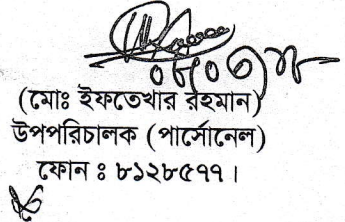 (মোঃ ইফতেখার রহমান)
উপপরিচালক (পার্সোনেল)
ফোন ঃ ৮১২৮৫৭৭ ।